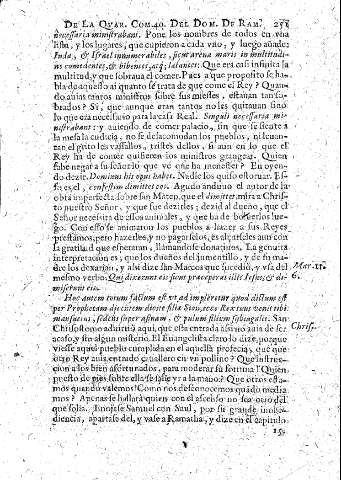 DE LA QUAR. COM. 40. DEL DOM. DE RAM. 251
necessaria ministrabant. Pone los nombres de todos en vna
lista, y los lugares, que cupieron a cada vno, y luego añade:
Iuda, & Israel innumerabiles, sicut arena maris in multitudi-
ne comedentes, & bibentes, atq; laetantes: Que era casi infinita la
multitud, y que sobraua el comer. Pues a que proposito se ha-
bla de aquesto a quanto se trata de que come el Rey? Quan-
do auia tantos ministros sobre sus mieses, estauan tan so-
brados? Si, que aunque eran tantos no les quitauan sino
lo que era necessario para la casa Real. Singuli necessaria mi-
nistrabant: y auiendo de comer palacio, sin que se siente a
la mesa la cudicia, no se desacomodan los pueblos, ni leuan-
tan el grito los vassallos, tristes dellos, si aun en lo que el
Rey ha de comer quisieren los ministros grangear. Quien
sabe negar a su señor lo que vè que ha menester? En oyen-
do dezir, Dominus his opus habet. Nadie los quiso estoruar. Es-
sa es el, confestim dimittet eos. Agudo anduuo el autor de la
obra imperfecta sobre san Mateo, que el dimittet, mira a Chris-
to nuestro Señor, y que fue dezirles; dezid al dueño, que el
Señor necessita de essos animales, y que ha de boluerlos lue-
go. Con esso se animaron los pueblos a hazer a sus Reyes
prestamos, pero hazerles, y no pagarselos, es dexarles aun con
la gratitud que esperauan, llamandose donatiuos. La genuina
interpretacion es, que los dueños del jumentillo, y de su ma-
dre los dexarian, y alsi dize San Marcos que sucediò, y vsa del
mesmo verbo. Qui dixerunt eis sicut praeceperat illis Iesus, & di-
miserunt eis.
Mar. 11.
6.
Hoc autem totum factum est vt ad impleretur quod dictum est
per Prophetam dicentem dicite filia Sion, ecce Rex tuus venit tibi
mansuetus, sedens super asinam, & pulum filium subiugalis. San
Chrisostomo aduirtiò aqui, que esta entrada a sumo auia de ser
acaso, y sin algun misterio. El Euangelista claro lo dize, porque
viesse aquel pueblo cumplida en el aquella profecia, que que
otro Rey auia entrado cauallero en vn pollino? Que instruc-
cion a los bien afortunados, para moderar su fortuna! Quien
puesto de pies sobre ella se sase y va a la mano? Que otros esta-
mos quando valemos! Como nos desconocemos quando media-
mos? Apenas se hallarà quien con el ascenso no sea otro del
que solia. Enojose Samuel con Saul, por su grande inobe-
diencia, apartase del, y vase a Ramatha, y dize en el capitulo
Chris.
15.